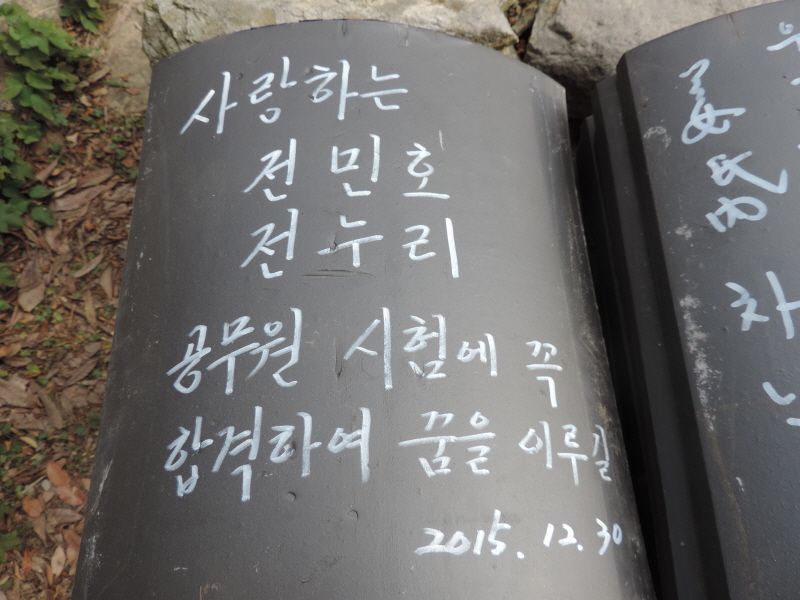 사랑하는
전 민 호
전 누 리
공무원 시험에 꼭
합격하여 꿈을 이루길
2015. 12. 30
姜
氏
차